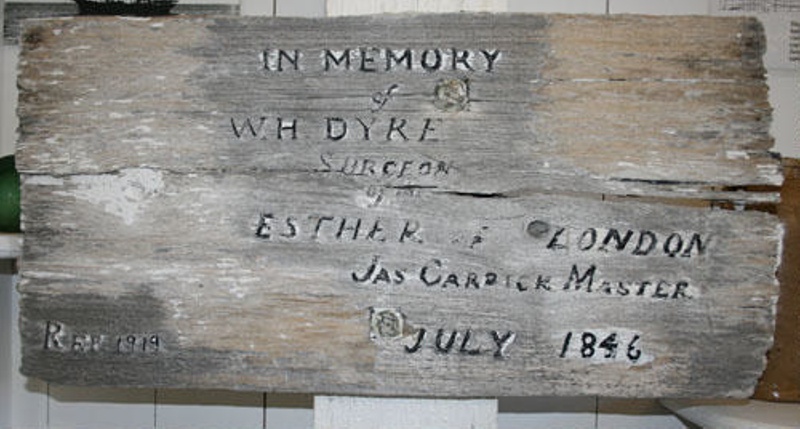 IN MEMORY
of
WH DYKE
SURGEON
of THE
ESTHER of LONDON
JAS CARRICK MASTER
JULY 1846
REP 1919